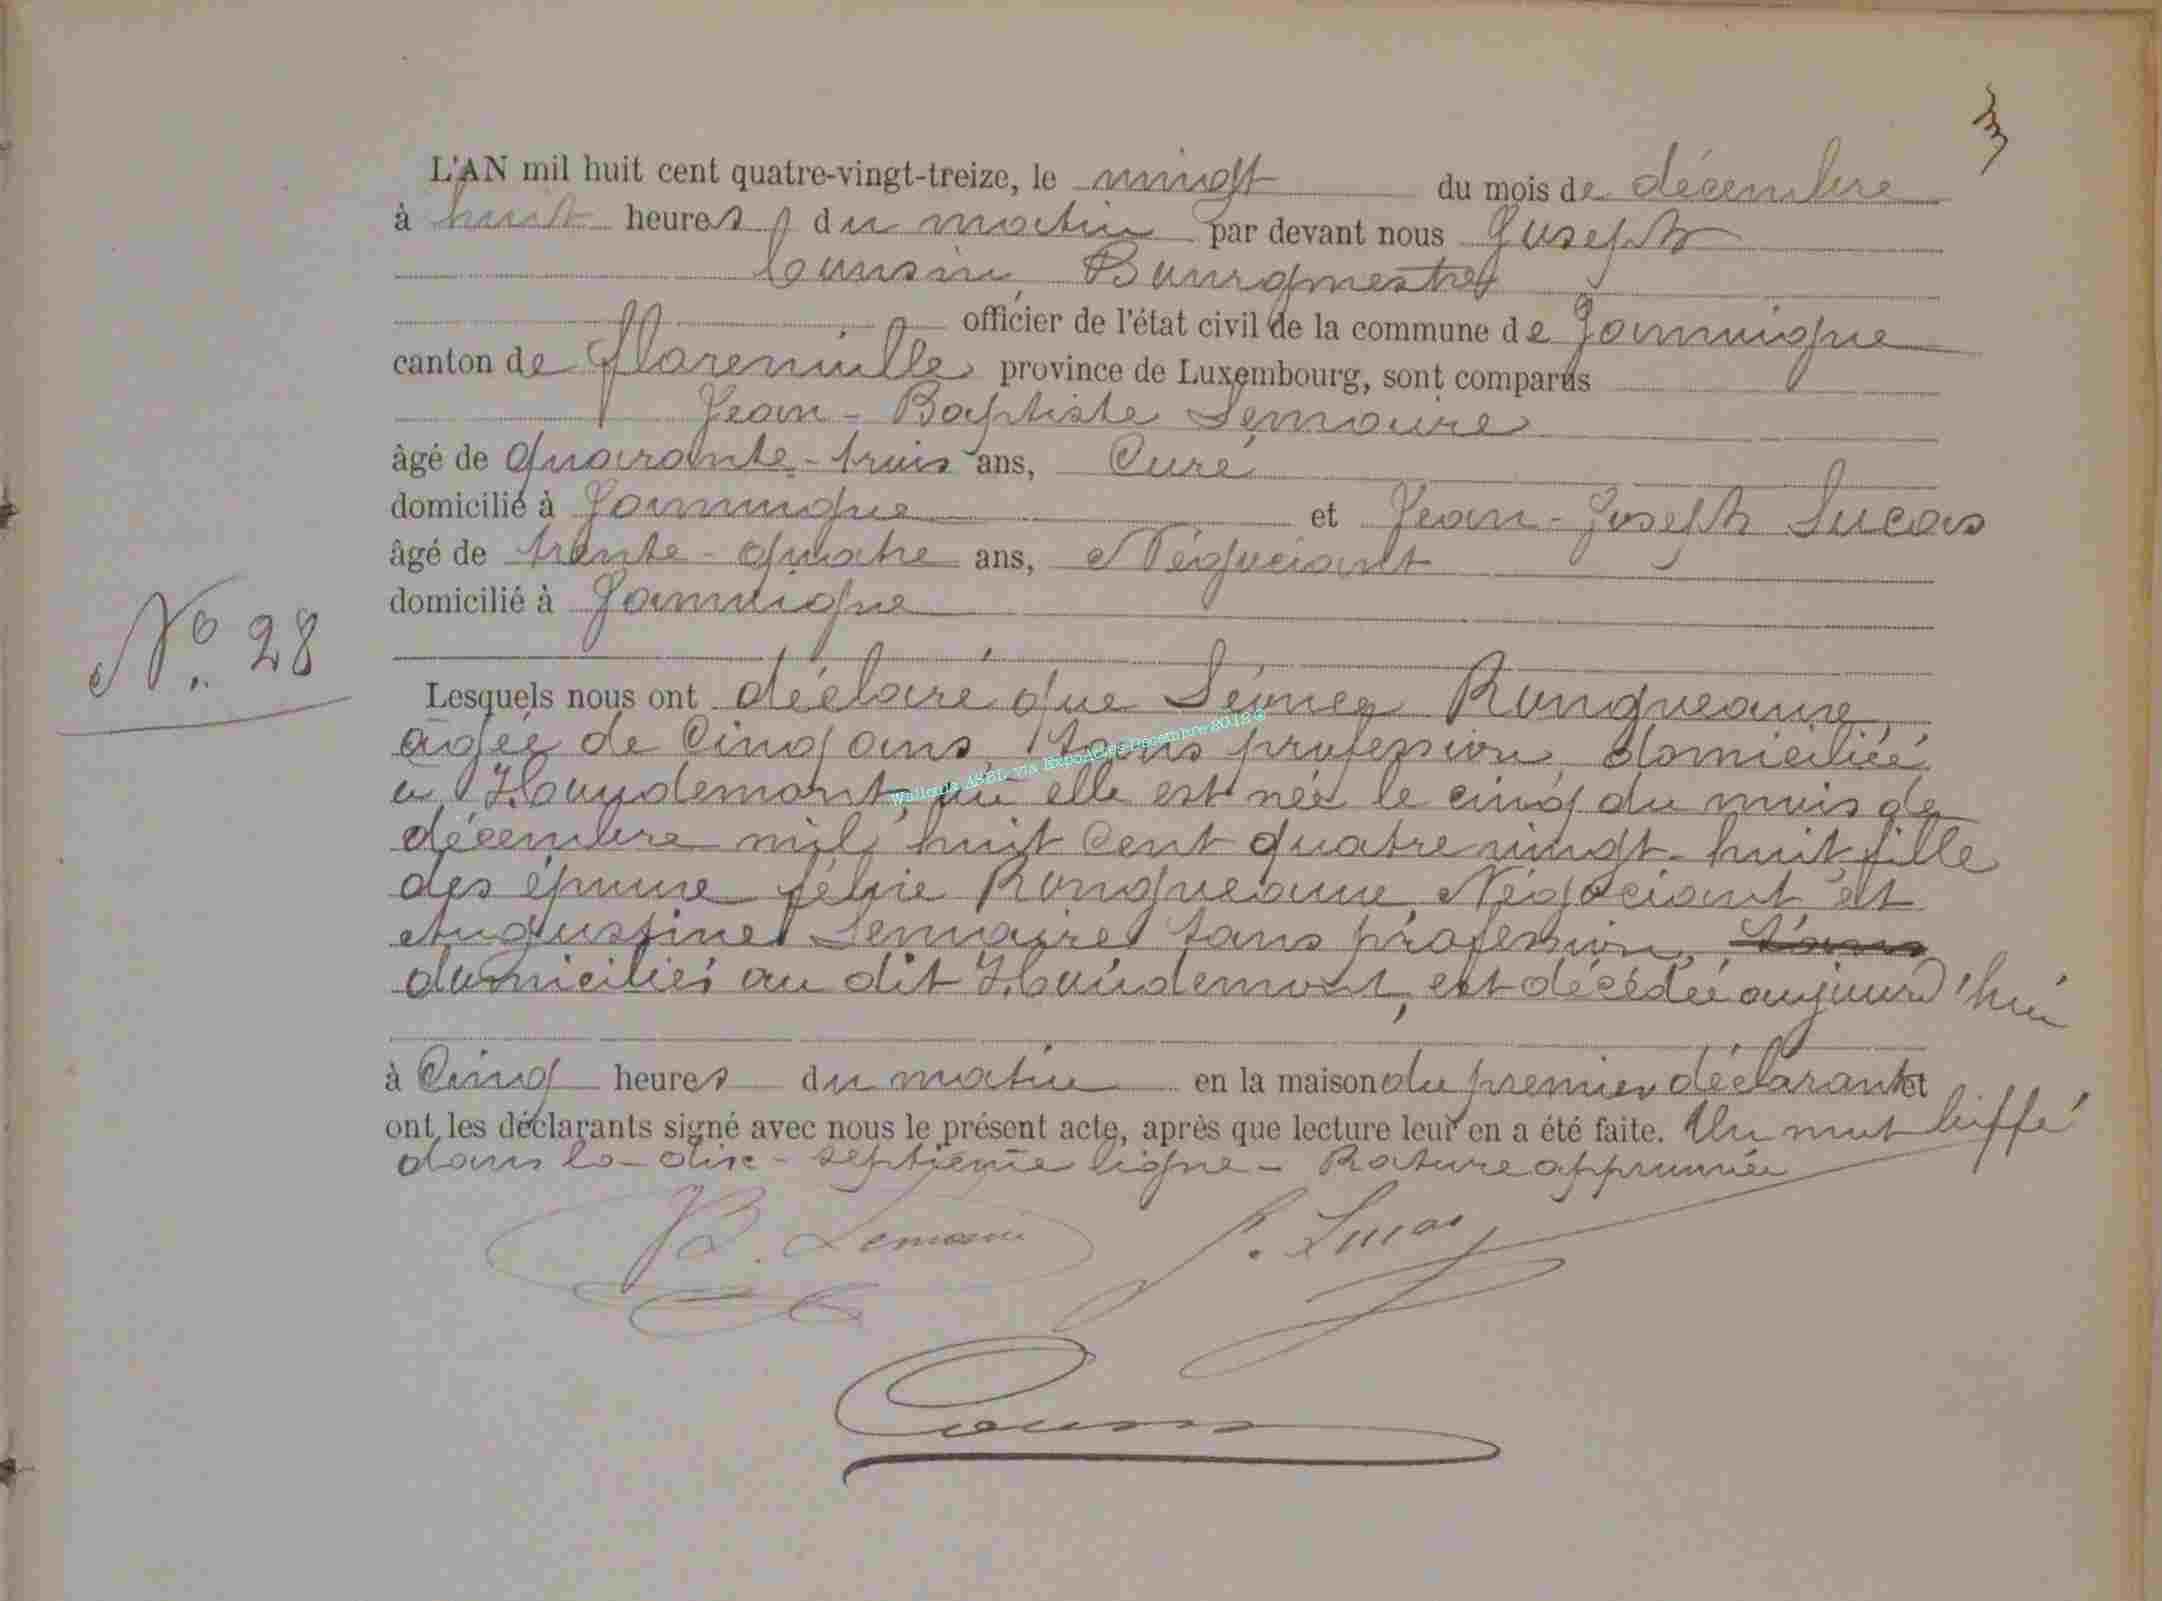 L'AN mil huit cent quatre-vingt-treize, le vingt du mois de décembre
à huit heures du matin par devant nous Joseph
Cousin, Bourgmestre
officier de l'état civil de la commune de Jamoigne
canton de florenville province de Luxembourg, sont comparus
Jean-Baptiste Lemaire
âgé de quarante-trois ans, Curé
domicilié à Jamoigne et Jean-Joseph Lucas
âgé de trente-quatre ans, Négociant
domicilié à Jamoigne
N° 28
Lesquels nous ont déclaré que Rongveaux,
agée de Cinq ans, sans profession, domiciliée
à Houdemont, où elle est née le cinq du mois de
décembre mil huit Cent quatre vingt-huit fille
des époux Rongveaux, Négociant et
Augustine Lemaire sans profession, sans
domiciliés au dit Houdemont, est décédée aujourd'hui
à Cinq heures du matin en la maison du premier déclarant et
ont les déclarants signé avec nous le présent acte, après que lecture leur en a été faite. Un mot biffé
dans la dix-septième ligne - Rature approuvée
B. Lemaire J. Lucas
Cousin
Wallonia ASBL via ExpoActes Décembre 2012 ©